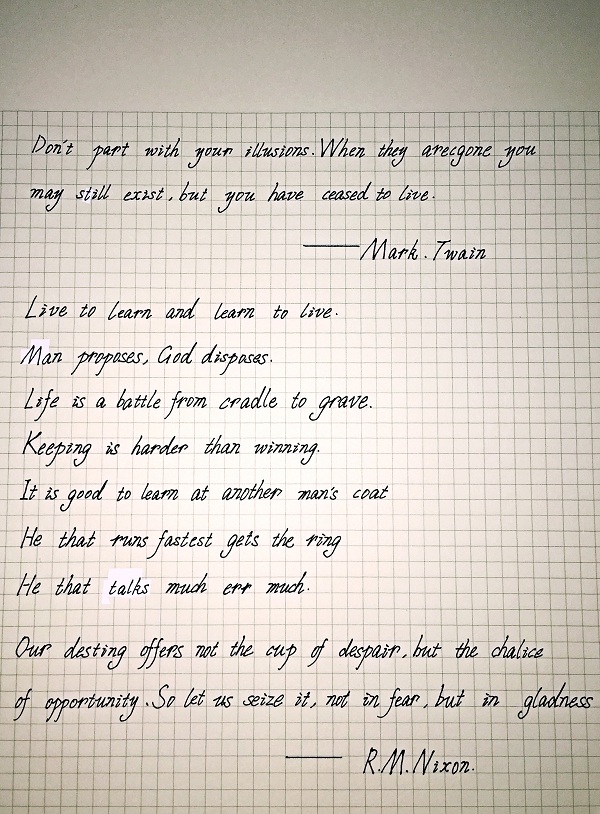 Don't part with your illusions. When they arecgone you
may still exist, but you have ceased to live.
—— Mark. Twain
Live to learn and learn to live.
Man proposes, God disposes.
Life is a battle from cradle to grave.
Keeping is harder than winning.
It is good to learn at another man's coat
He that runs fastest gets the ring
He that talks much err much.
Our desting offers not the cup of despair, but the chalice
of opportunity. So let us seize it, not in fear, but in gladness
—— R.M.Nixon.